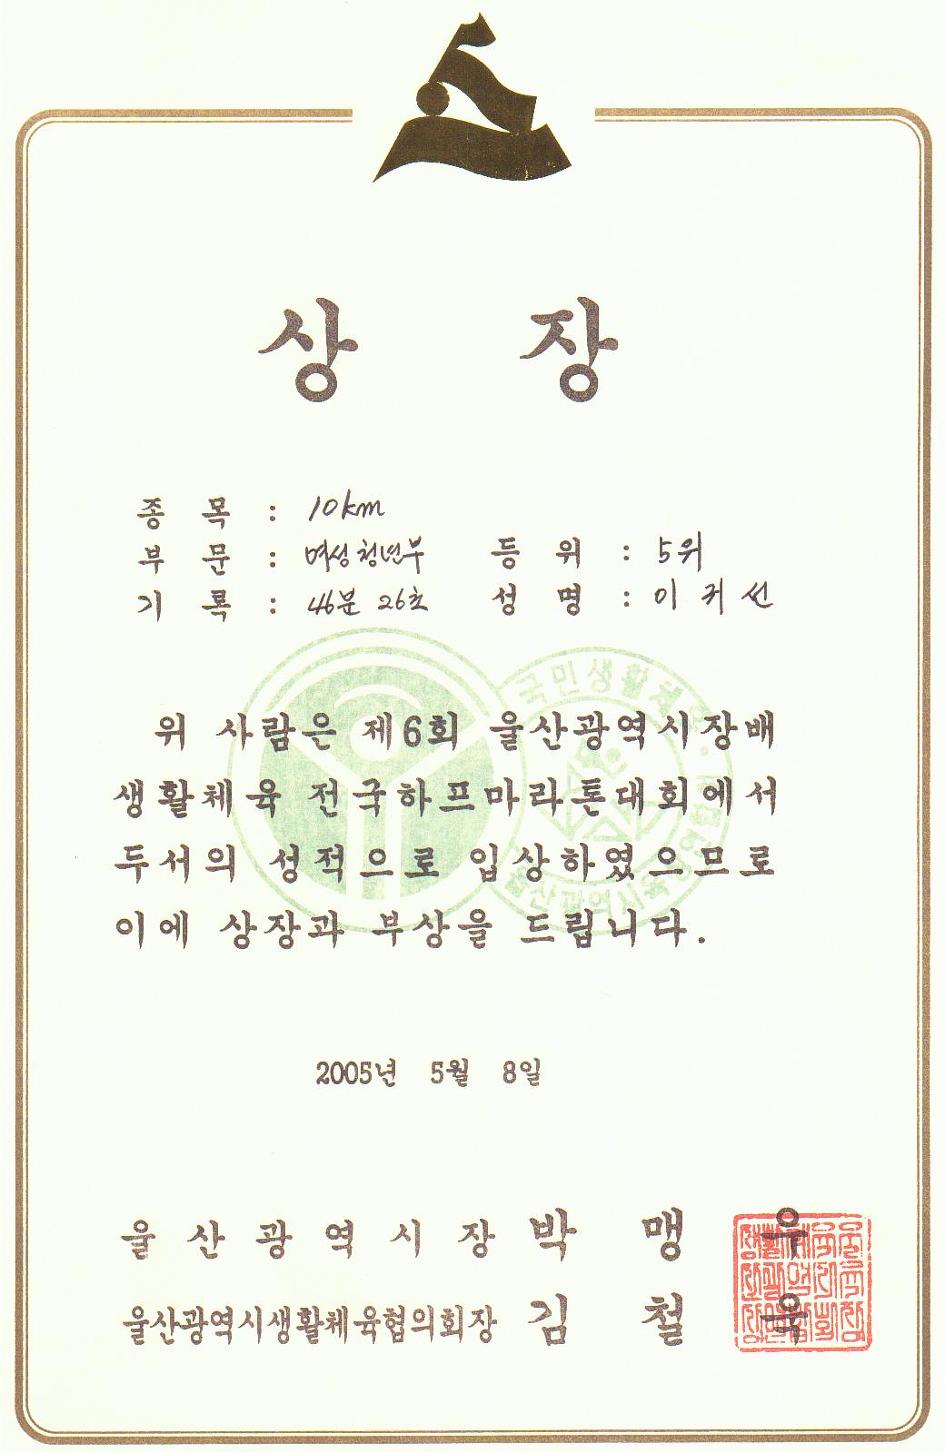 상 장
종 목 : 10km
부 문 : 여성청년부 등 위 : 5위
기 록 : 46분 26초 성 명 : 이귀선
위 사람은 제6회 울산광역시장배
생활체육 전국하프마라톤대회에서
두서의 성적으로 입상하였으므로
이에 상장과 부상을 드립니다.
2005년 5월 8일
울산광역시장 박 맹 우
울산광역시생활체육협의회장 김 철 욱
국민생활체
울산광역시